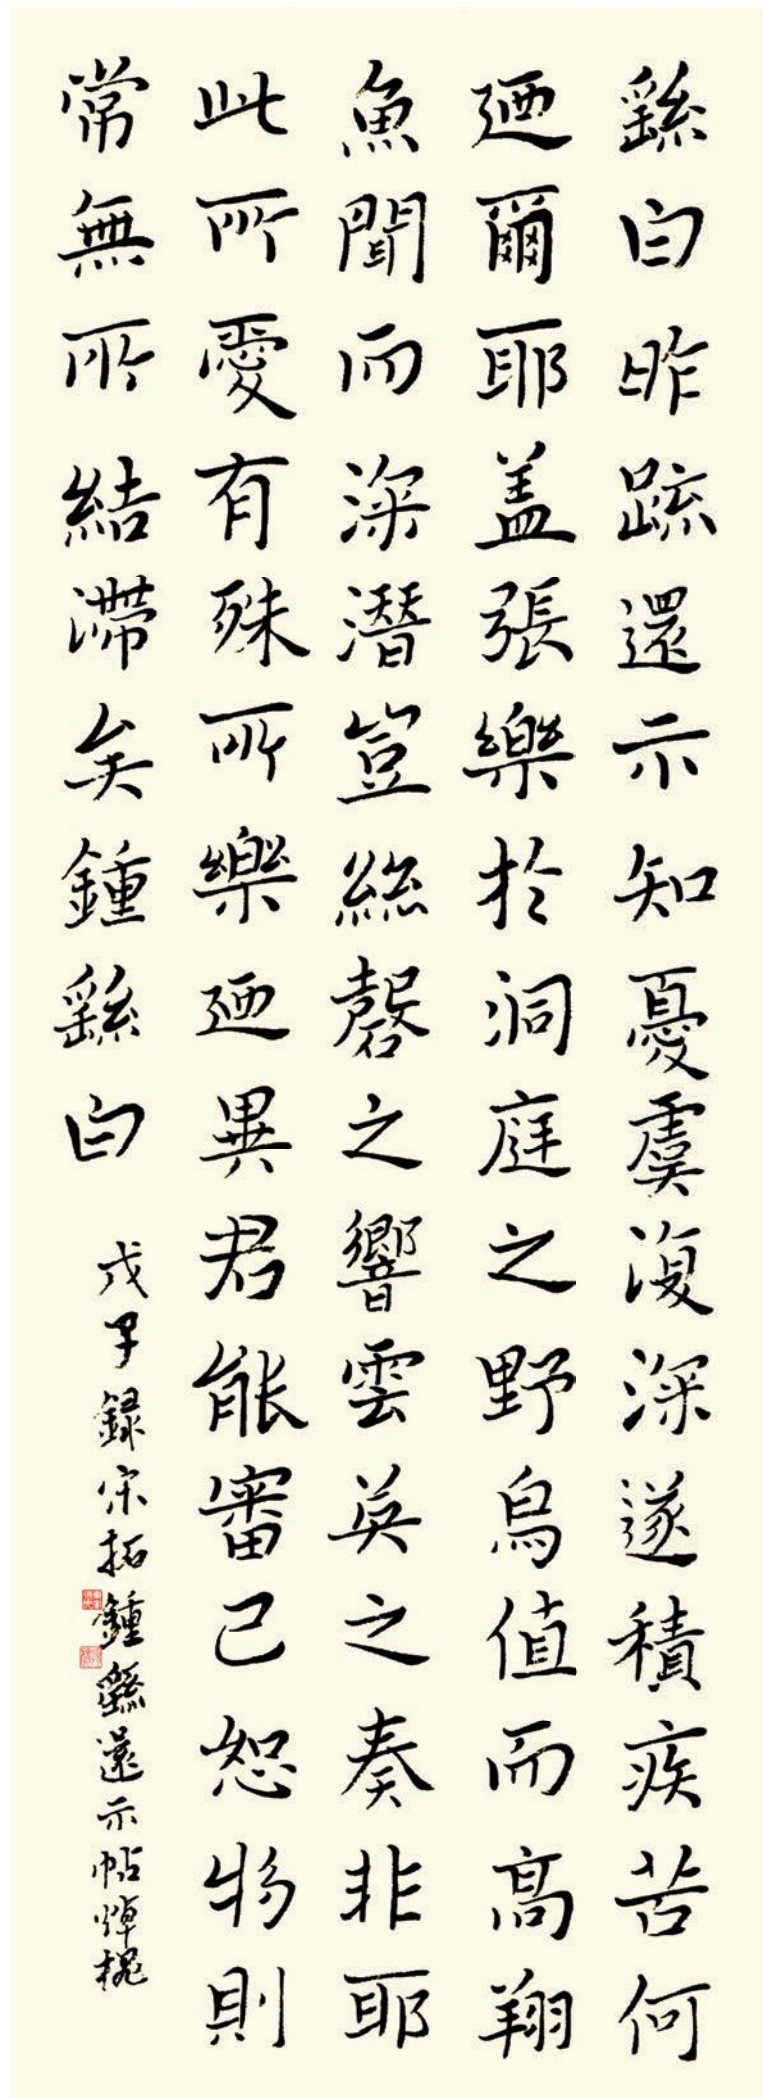 繇白昨疏還示知憂虞復深遂積疾苦何
廼爾耶盖張樂於洞庭之野鳥值而高翔
魚聞而深潛豈絲磬之響雲英之奏非耶
此所愛有殊所樂廼異君能審己恕物則
常無所結滯矣鍾繇白
戊子錄宋拓鍾繇還示帖